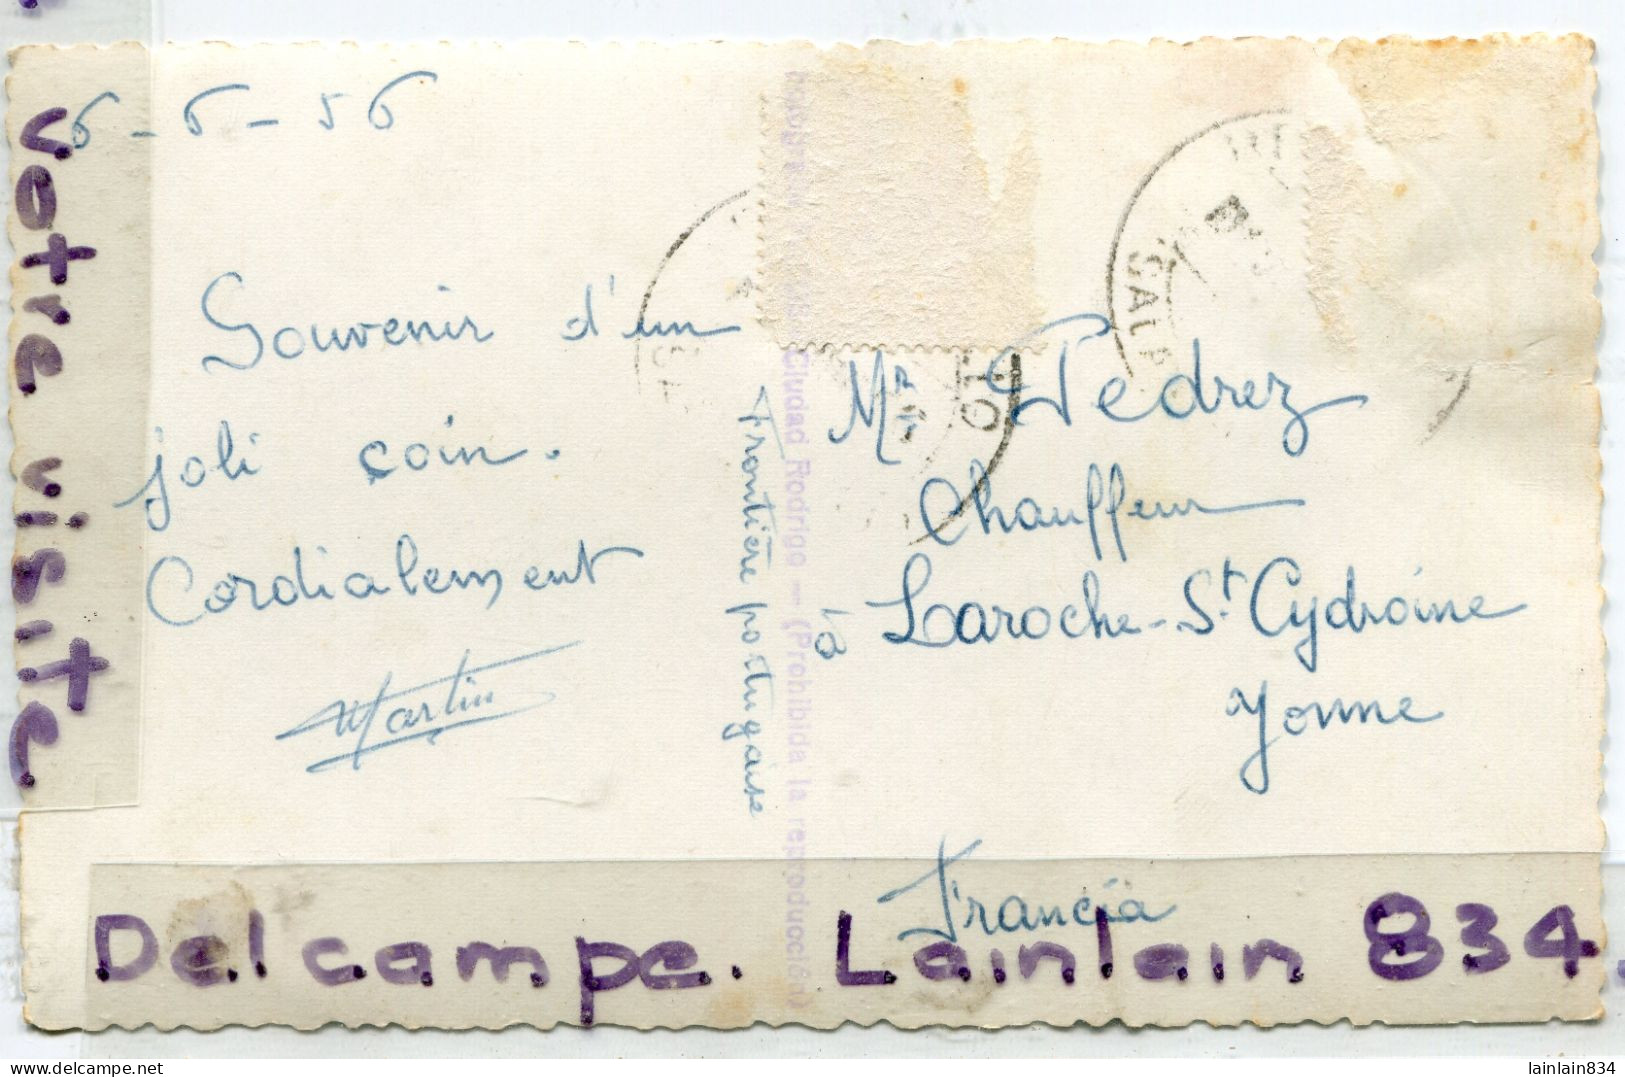 6-6-56
Souvenir d'un
joli coin.
Cordialement
Martin
Frontière portugaise
Ciudad Rodrigo — (Prohibida la reproducción)
Mr Pedrez
Chauffeur
à Laroche-St Cydroine
Yonne
Francia
votre visite
Delcampe. Lainlain 834.
www.delcampe.net
lainlain834